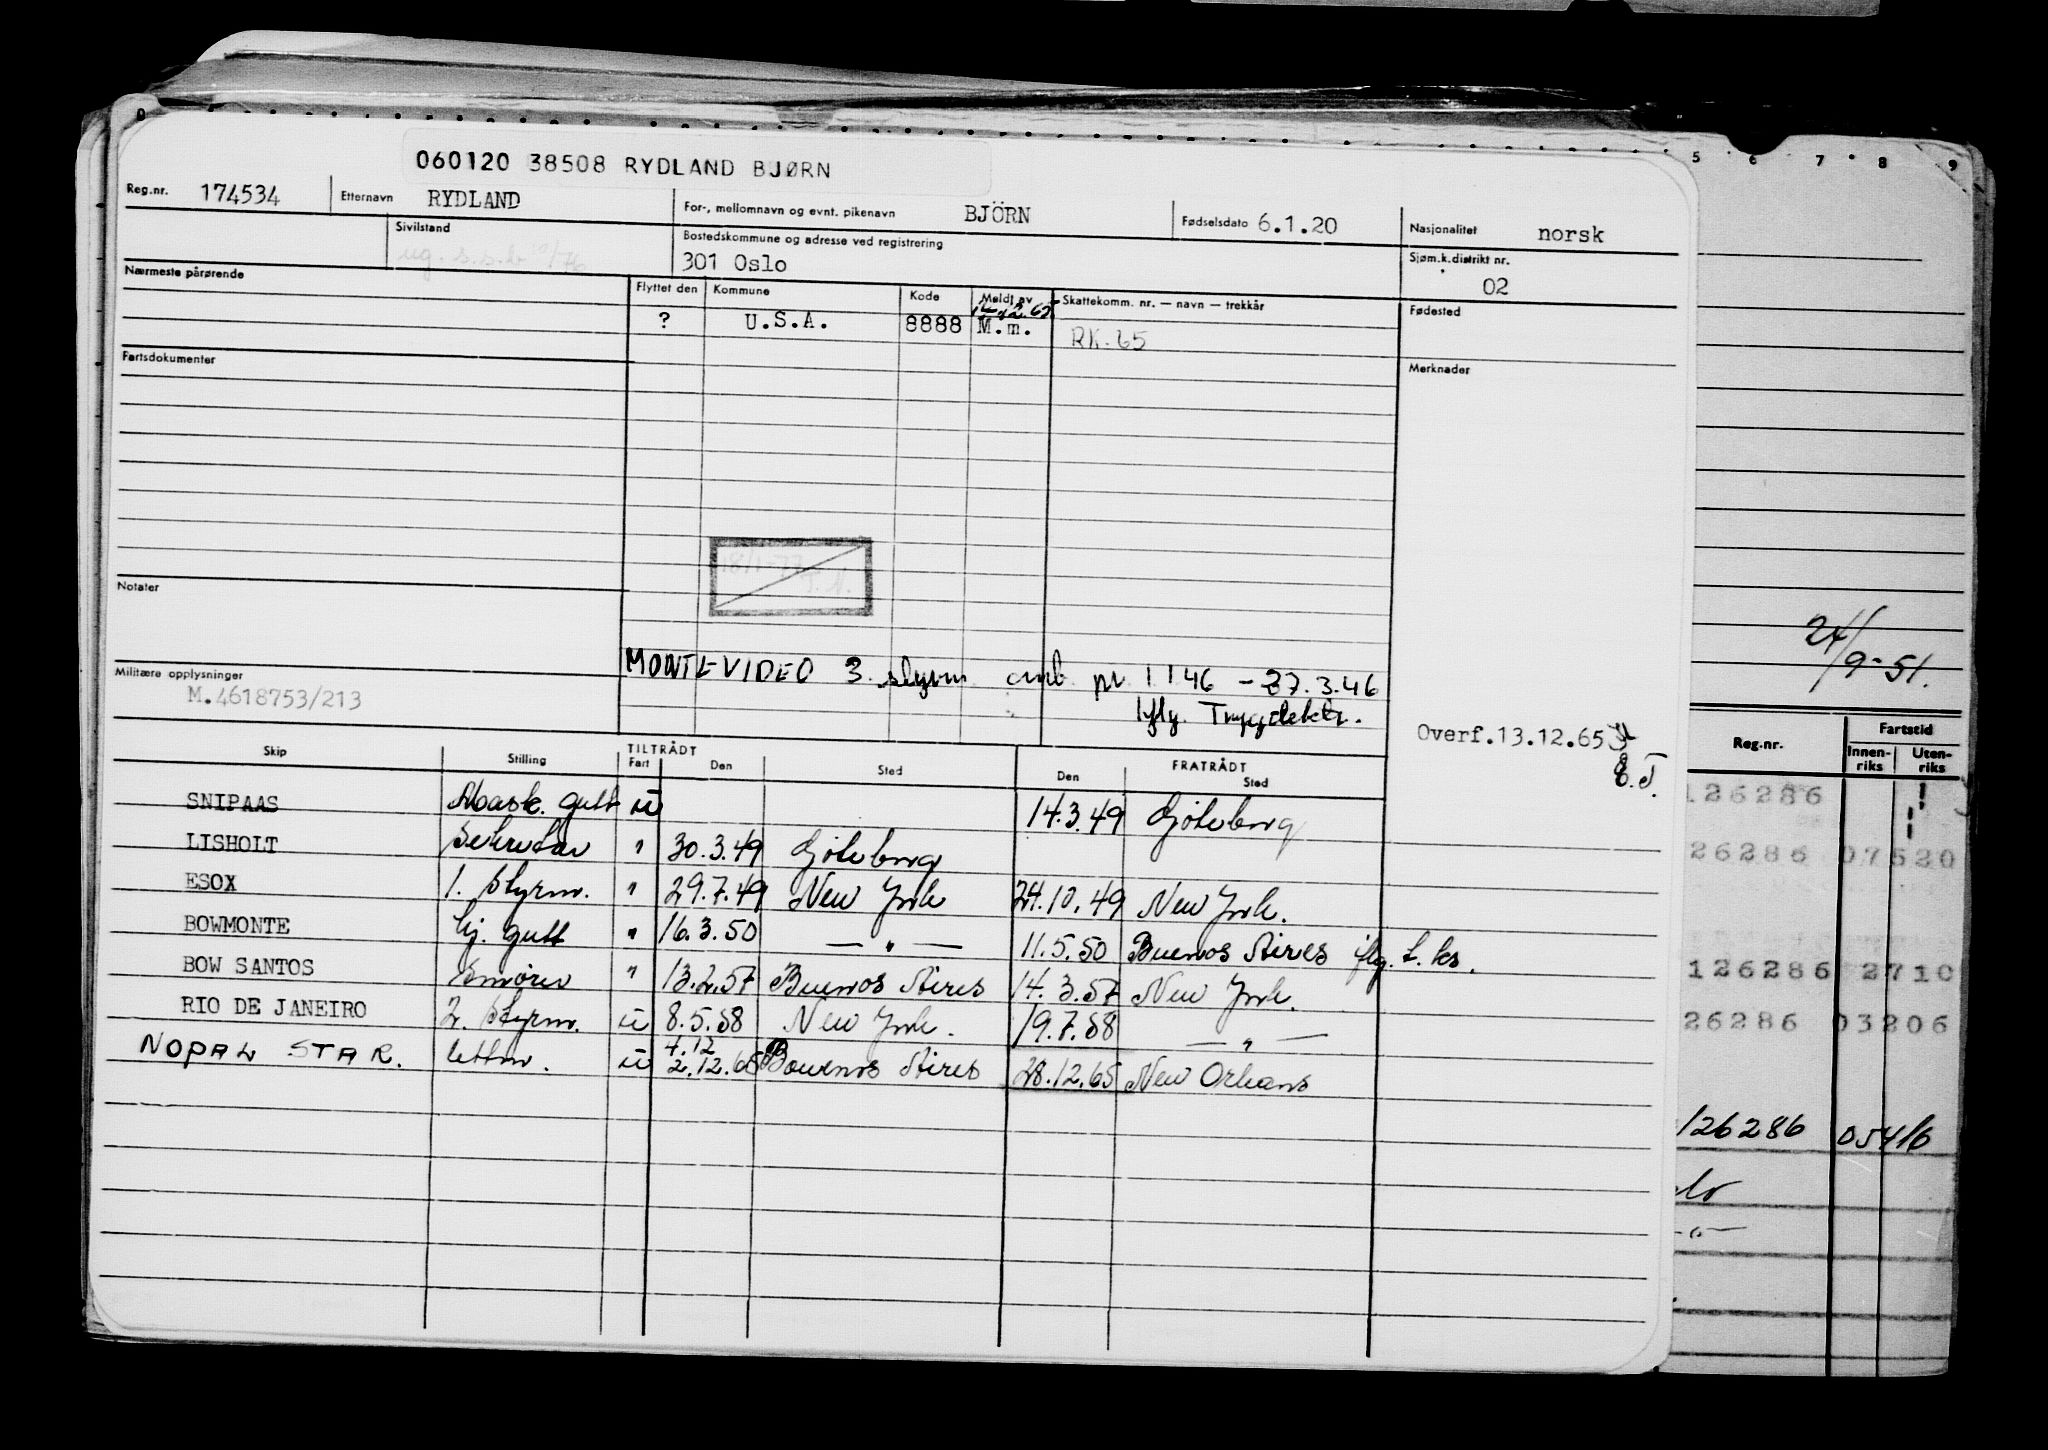 060120 38508 RYDLAND BJØRN
Reg.nr. 174534 Etternavn RYDLAND For-, mellomnavn og evnt. pikenavn BJÖRN Fødselsdato 6.1.20 Nasjonalitet norsk
Sivilstand ug. Bostedskommune og adresse ved registrering 301 Oslo Sjøm.k.distrikt nr. 02
Nærmeste pårørende Flyttet den Kommune Kode Meldt av Skattekomm. nr. — navn — trekkår Fødested
? U.S.A. 8888 M.m. RK. 65
Fartsdokumenter Merknader
Notater
MONTEVIDEO 3. styrm. 1 1 46 - 27.3.46
Militære opplysninger
M.4618753/213
Overf.13.12.65
Skip Stilling TILTRÅDT Fart Den Sted FRATRÅDT Den Sted
SNIPAAS Mask. gutt u 14.3.49 Göteborg
LISHOLT " 30.3.49 Göteborg
ESOX 1. styrm. " 29.7.49 New York 24.10.49 New York.
BOWMONTE gutt " 16.3.50 — " — 11.5.50 Buenos Aires
BOW SANTOS smører " 13.2.57 Buenos Aires 14.3.57 New York.
RIO DE JANEIRO 2. styrm. u 8.5.58 New York. 19.7.58 — " —
4.12
NOPAL STAR. lettm. u 2.12.65 Bouenos Aires 28.12.65 New Orleans
5 6 7 8 9
24/9-51.
Reg.nr. Fartstid
Innen-riks Uten-riks
126286
26286 07520
126286 2710
26286 03206
126286 05416